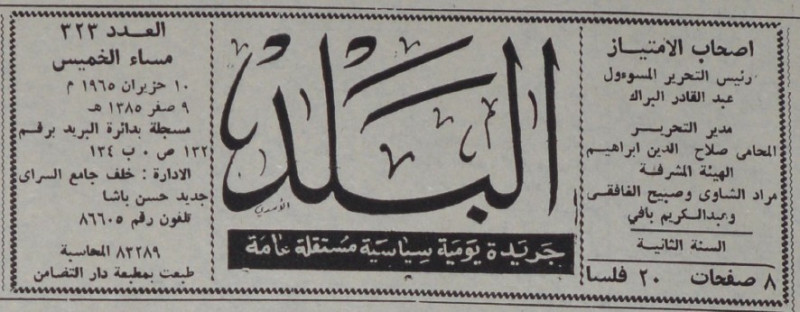 اصحاب الامتياز
رئيس التحرير المسوءول
عبد القادر البراك
مدير التحرير
المحامى صلاح الدين ابراهيم
الهيئة المشرفة
مراد الشاوى وصبيح الغافقى
وعبدالكريم بافي
السنة الثانية
٨ صفحات ٢٠ فلسا
البلد
جريدة يومية سياسية مستقلة عامة
العدد ٣٢٣
مساء الخميس
١٠ حزيران ١٩٦٥ م
٩ صفر ١٣٨٥ هـ
مسجلة بدائرة البريد برقم
١٣٢ ص ٠ ب ١٣٤
الادارة : خلف جامع السراى
جديد حسن باشا
تلفون رقم ٨٦٦٠٥
٨٣٢٨٩ المحاسبة
طبعت بمطبعة دار التضامن